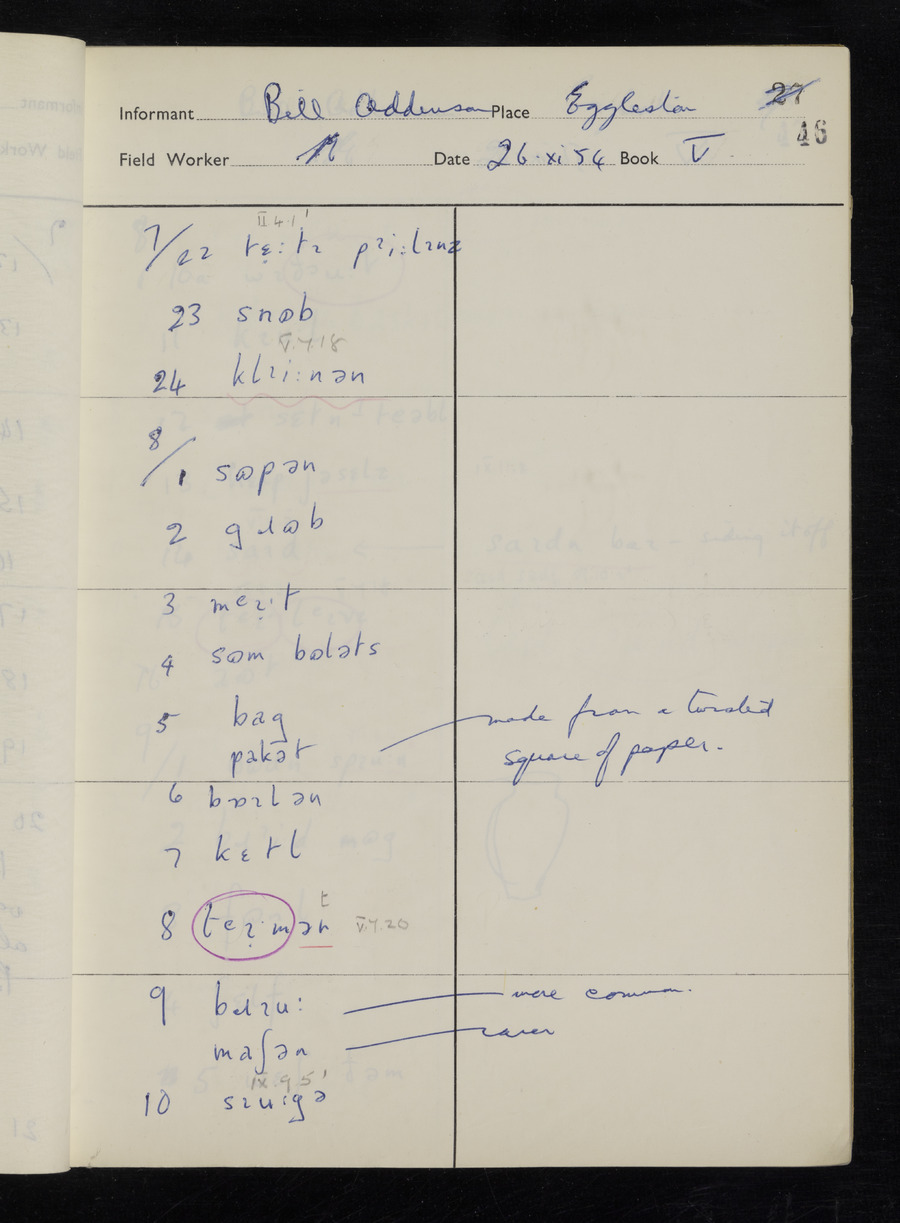 27
Informant Bill Addenson Place Eggleston
46
Field Worker Date 26.xi 54 Book V
II 4.1'
7/22 tɛ̣:tɪ pɪi:lɪnz
23 snɵb
V.7.18
24 klɪi:nən
8/1 sɵpən
2 gɹɵb
3 meɪ̣·t
4 sɵm bɵləts
5 bag
pakət made from a twisted
square of paper.
6 bɒɪlən
7 kɛtl
8 teɪ̣·mən t V.7.20
9 bɹɪu: more common.
maʃən rarer
IX.9.5'
10 sɪuɪgə